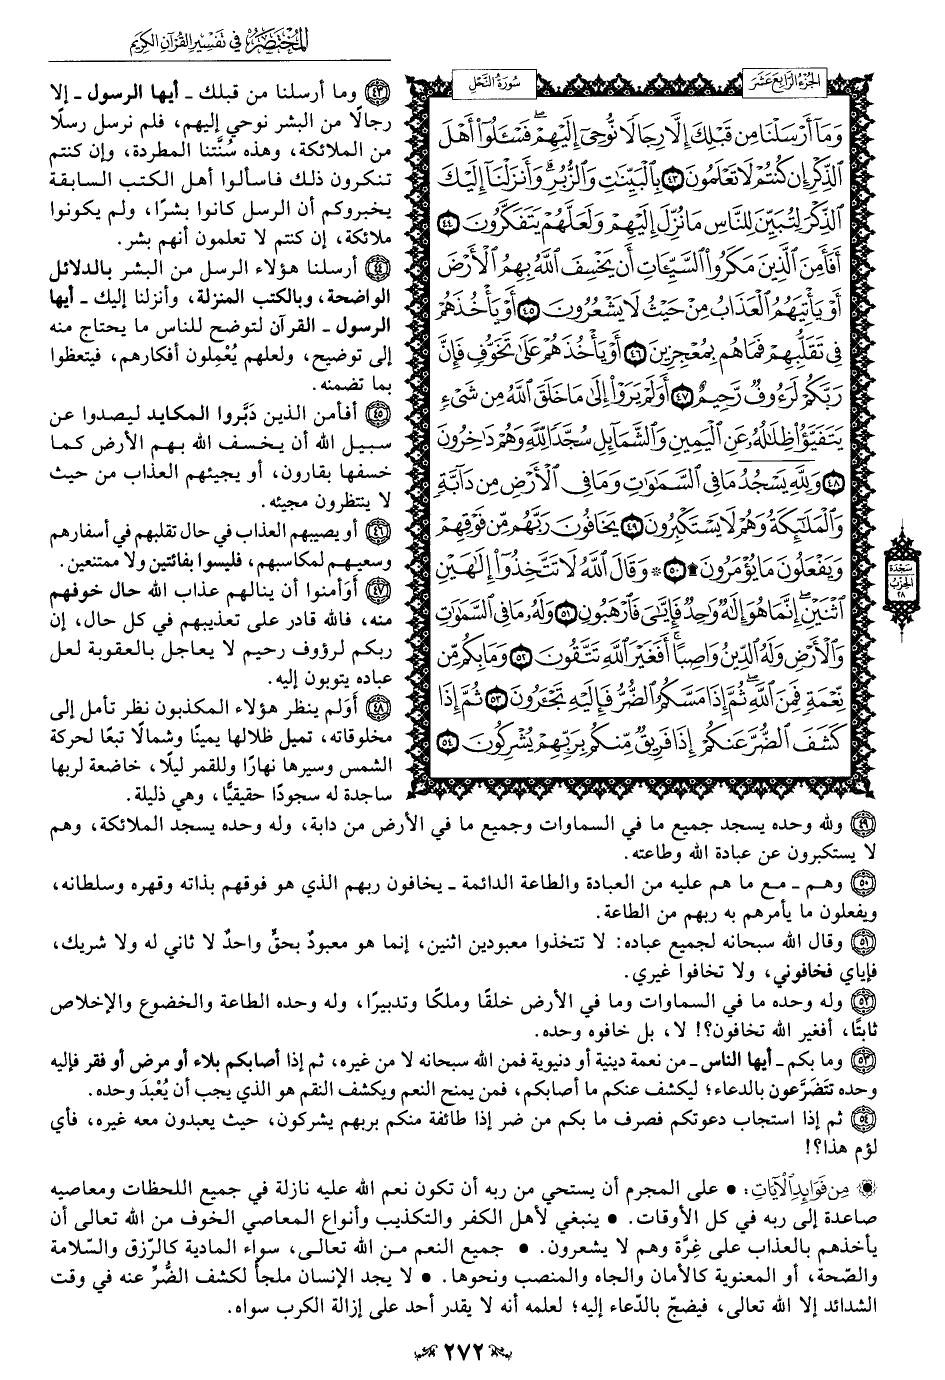 المختصر في تفسير القرآن الكريم
الجزء الرابع عشر
سورة النحل
وَمَآ أَرۡسَلۡنَا مِن قَبۡلِكَ إِلَّا رِجَالٗا نُّوحِيٓ إِلَيۡهِمۡۖ فَسۡـَٔلُوٓاْ أَهۡلَ
ٱلذِّكۡرِ إِن كُنتُمۡ لَا تَعۡلَمُونَ ٤٣ بِٱلۡبَيِّنَٰتِ وَٱلزُّبُرِۗ وَأَنزَلۡنَآ إِلَيۡكَ
ٱلذِّكۡرَ لِتُبَيِّنَ لِلنَّاسِ مَا نُزِّلَ إِلَيۡهِمۡ وَلَعَلَّهُمۡ يَتَفَكَّرُونَ ٤٤
أَفَأَمِنَ ٱلَّذِينَ مَكَرُواْ ٱلسَّيِّـَٔاتِ أَن يَخۡسِفَ ٱللَّهُ بِهِمُ ٱلۡأَرۡضَ
أَوۡ يَأۡتِيَهُمُ ٱلۡعَذَابُ مِنۡ حَيۡثُ لَا يَشۡعُرُونَ ٤٥ أَوۡ يَأۡخُذَهُمۡ
فِي تَقَلُّبِهِمۡ فَمَا هُم بِمُعۡجِزِينَ ٤٦ أَوۡ يَأۡخُذَهُمۡ عَلَىٰ تَخَوُّفٖ فَإِنَّ
رَبَّكُمۡ لَرَءُوفٞ رَّحِيمٌ ٤٧ أَوَلَمۡ يَرَوۡاْ إِلَىٰ مَا خَلَقَ ٱللَّهُ مِن شَيۡءٖ
يَتَفَيَّؤُاْ ظِلَٰلُهُۥ عَنِ ٱلۡيَمِينِ وَٱلشَّمَآئِلِ سُجَّدٗا لِّلَّهِ وَهُمۡ دَٰخِرُونَ
٤٨ وَلِلَّهِۤ يَسۡجُدُۤ مَا فِي ٱلسَّمَٰوَٰتِ وَمَا فِي ٱلۡأَرۡضِ مِن دَآبَّةٖ
وَٱلۡمَلَٰٓئِكَةُ وَهُمۡ لَا يَسۡتَكۡبِرُونَ ٤٩ يَخَافُونَ رَبَّهُم مِّن فَوۡقِهِمۡ
وَيَفۡعَلُونَ مَا يُؤۡمَرُونَ۩ ٥٠ ۞ وَقَالَ ٱللَّهُ لَا تَتَّخِذُوٓاْ إِلَٰهَيۡنِ
ٱثۡنَيۡنِۖ إِنَّمَا هُوَ إِلَٰهٞ وَٰحِدٞ فَإِيَّٰيَ فَٱرۡهَبُونِ ٥١ وَلَهُۥ مَا فِي ٱلسَّمَٰوَٰتِ
وَٱلۡأَرۡضِ وَلَهُ ٱلدِّينُ وَاصِبًاۚ أَفَغَيۡرَ ٱللَّهِ تَتَّقُونَ ٥٢ وَمَا بِكُم مِّن
نِّعۡمَةٖ فَمِنَ ٱللَّهِۖ ثُمَّ إِذَا مَسَّكُمُ ٱلضُّرُّ فَإِلَيۡهِ تَجۡـَٔرُونَ ٥٣ ثُمَّ إِذَا
كَشَفَ ٱلضُّرَّ عَنكُمۡ إِذَا فَرِيقٞ مِّنكُم بِرَبِّهِمۡ يُشۡرِكُونَ ٥٤
سجدة
الحزب
٢٨
٤٣ وما أرسلنا من قبلك ـ أيها الرسول ـ إلا
رجالًا من البشر نوحي إليهم، فلم نرسل رسلًا
من الملائكة، وهذه سُنَّتنا المطردة، وإن كنتم
تنكرون ذلك فاسألوا أهل الكتب السابقة
يخبروكم أن الرسل كانوا بشرًا، ولم يكونوا
ملائكة، إن كنتم لا تعلمون أنهم بشر.
٤٤ أرسلنا هؤلاء الرسل من البشر بالدلائل
الواضحة، وبالكتب المنزلة، وأنزلنا إليك ـ أيها
الرسول ـ القرآن لتوضح للناس ما يحتاج منه
إلى توضيح، ولعلهم يُعْمِلون أفكارهم، فيتعظوا
بما تضمنه.
٤٥ أفأمن الذين دَبَّروا المكايد ليصدوا عن
سبيل الله أن يخسف الله بهم الأرض كما
خسفها بقارون، أو يجيئهم العذاب من حيث
لا ينتظرون مجيئه.
٤٦ أو يصيبهم العذاب في حال تقلبهم في أسفارهم
وسعيهم لمكاسبهم، فليسوا بفائتين ولا ممتنعين.
٤٧ أَوَأمنوا أن ينالهم عذاب الله حال خوفهم
منه، فالله قادر على تعذيبهم في كل حال، إن
ربكم لرؤوف رحيم لا يعاجل بالعقوبة لعل
عباده يتوبون إليه.
٤٨ أَوَلم ينظر هؤلاء المكذبون نظر تأمل إلى
مخلوقاته، تميل ظلالها يمينًا وشمالًا تبعًا لحركة
الشمس وسيرها نهارًا وللقمر ليلًا، خاضعة لربها
ساجدة له سجودًا حقيقيًّا، وهي ذليلة.
٤٩ ولله وحده يسجد جميع ما في السماوات وجميع ما في الأرض من دابة، وله وحده يسجد الملائكة، وهم
لا يستكبرون عن عبادة الله وطاعته.
٥٠ وهم ـ مع ما هم عليه من العبادة والطاعة الدائمة ـ يخافون ربهم الذي هو فوقهم بذاته وقهره وسلطانه،
ويفعلون ما يأمرهم به ربهم من الطاعة.
٥١ وقال الله سبحانه لجميع عباده: لا تتخذوا معبودين اثنين، إنما هو معبودٌ بحقٍّ واحدٌ لا ثاني له ولا شريك،
فإياي فخافوني، ولا تخافوا غيري.
٥٢ وله وحده ما في السماوات وما في الأرض خلقًا وملكًا وتدبيرًا، وله وحده الطاعة والخضوع والإخلاص
ثابتًا، أفغير الله تخافون؟! لا، بل خافوه وحده.
٥٣ وما بكم ـ أيها الناس ـ من نعمة دينية أو دنيوية فمن الله سبحانه لا من غيره، ثم إذا أصابكم بلاء أو مرض أو فقر فإليه
وحده تتَضَرَّعون بالدعاء؛ ليكشف عنكم ما أصابكم، فمن يمنح النعم ويكشف النقم هو الذي يجب أن يُعْبدَ وحده.
٥٤ ثم إذا استجاب دعوتكم فصرف ما بكم من ضر إذا طائفة منكم بربهم يشركون، حيث يعبدون معه غيره، فأي
لؤم هذا؟!
من فوائد الآيات: • على المجرم أن يستحي من ربه أن تكون نعم الله عليه نازلة في جميع اللحظات ومعاصيه
صاعدة إلى ربه في كل الأوقات. • ينبغي لأهل الكفر والتكذيب وأنواع المعاصي الخوف من الله تعالى أن
يأخذهم بالعذاب على غِرَّة وهم لا يشعرون. • جميع النعم من الله تعالى، سواء المادية كالرّزق والسّلامة
والصّحة، أو المعنوية كالأمان والجاه والمنصب ونحوها. • لا يجد الإنسان ملجأً لكشف الضُّرِّ عنه في وقت
الشدائد إلا الله تعالى، فيضجّ بالدّعاء إليه؛ لعلمه أنه لا يقدر أحد على إزالة الكرب سواه.
٢٧٢